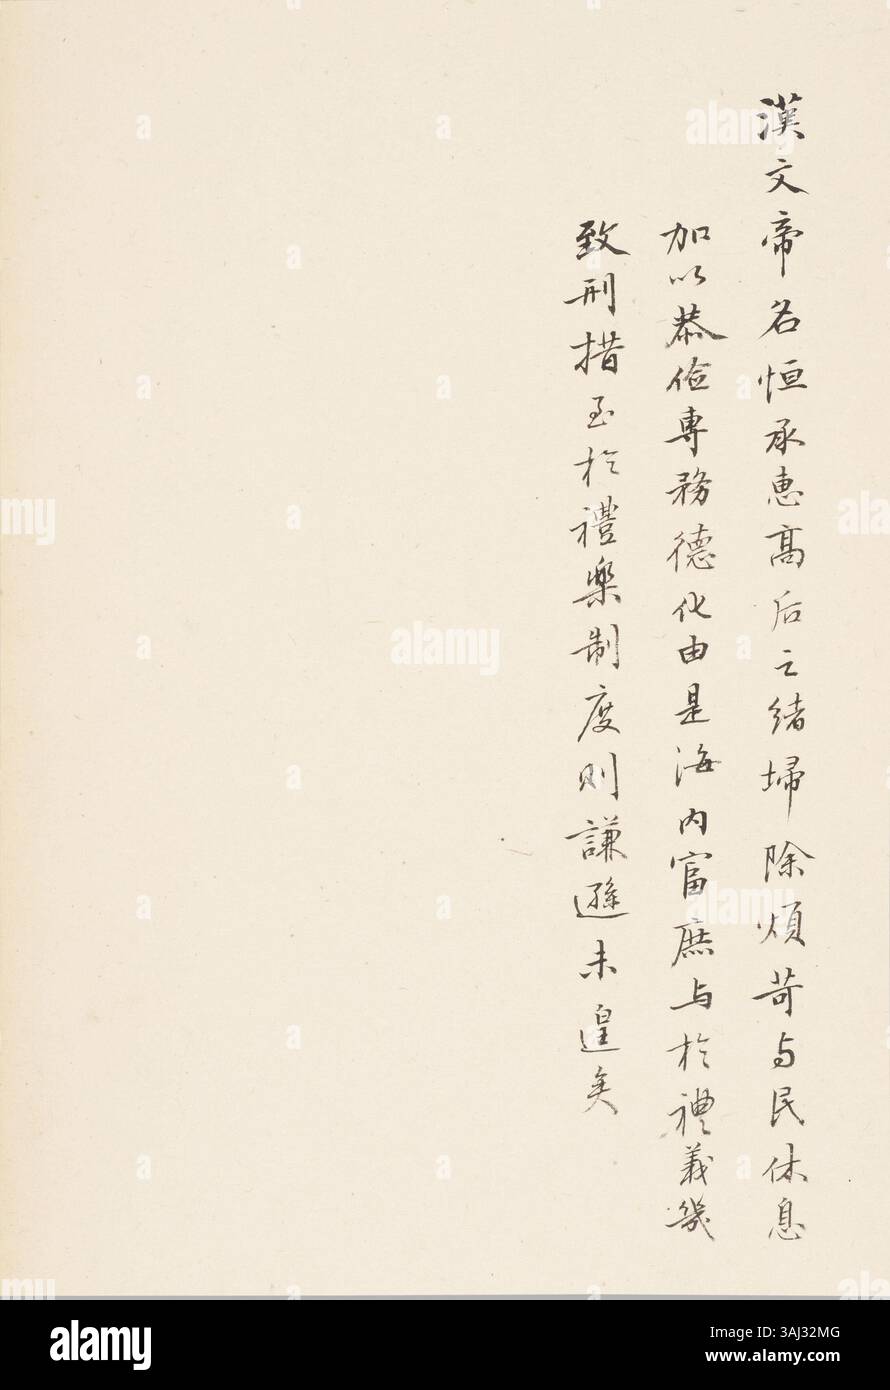 漢文帝名恒承惠高后之緒埽除煩苛与民休息
加以恭儉專務德化由是海內富庶与於禮義幾
致刑措至於禮樂制度則謙遜未遑矣
alamy
Image ID: 3AJ32MG
www.alamy.com